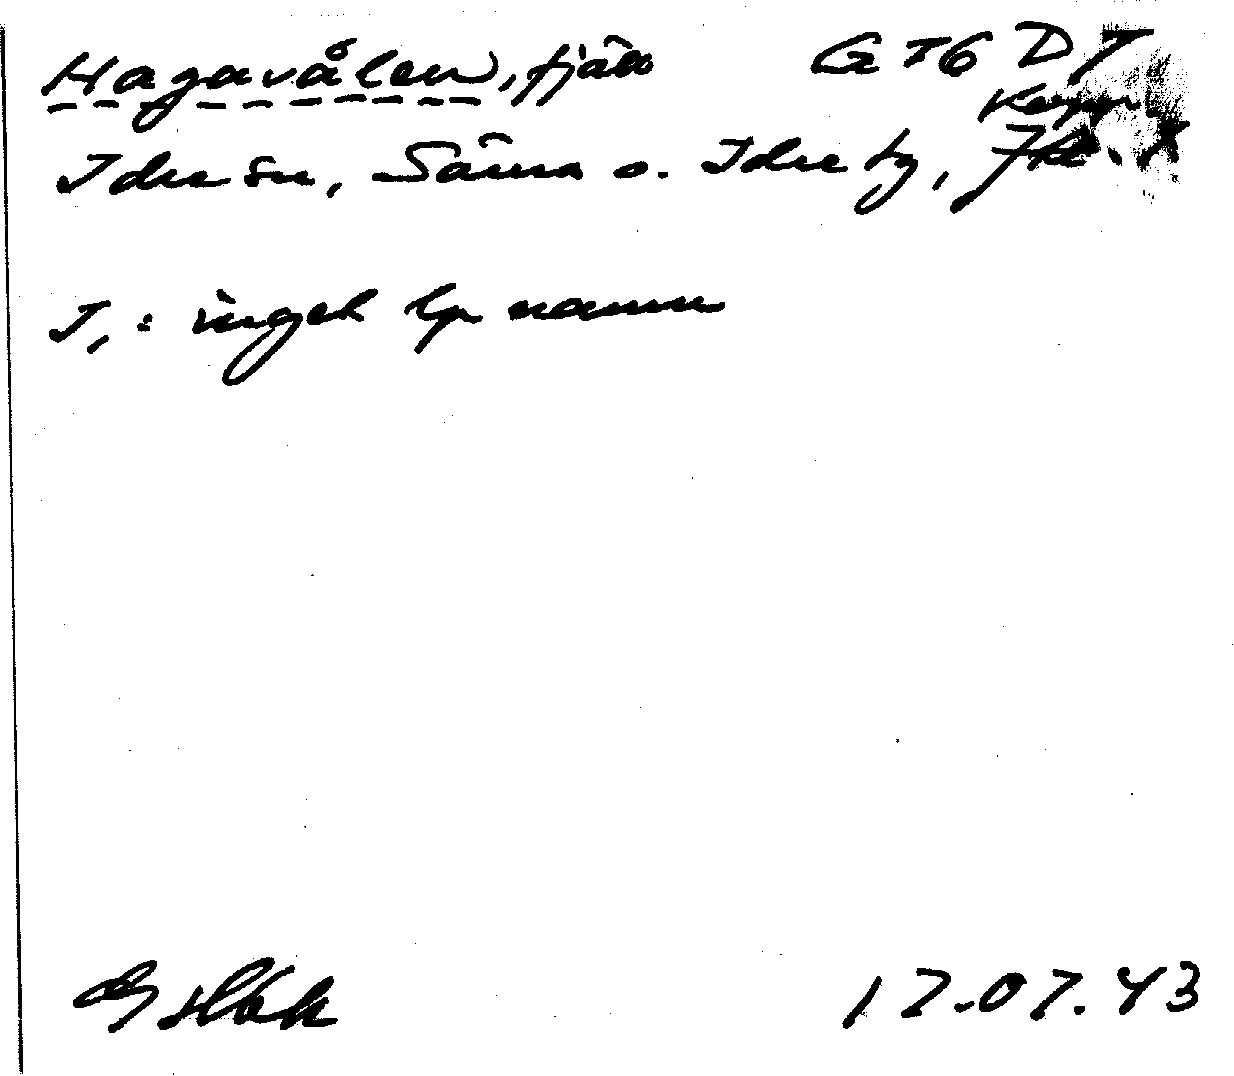 Hagavålen, fjäll G T6 D7
Kopp
Idre sn, Särna o. Idre tg,
J, : inget lp namn
17.07.43